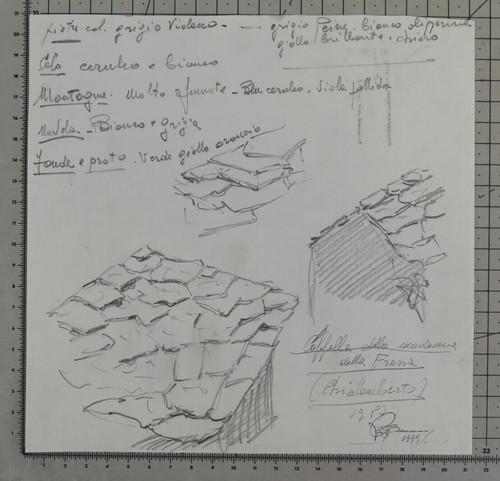 Pietre col. grigio Violaceo - — grigio Perne. bianco
giallo brillante. chiaro
Cielo ceruleo e bianco
Montagne. molto sfumate - Bleu ceruleo. Viola pallido
Nuvola - Bianco e grigia
Fondo e prato. Verde giallo arancio
Cappella della madonna
della Frassa
(Chialamberto)
1999